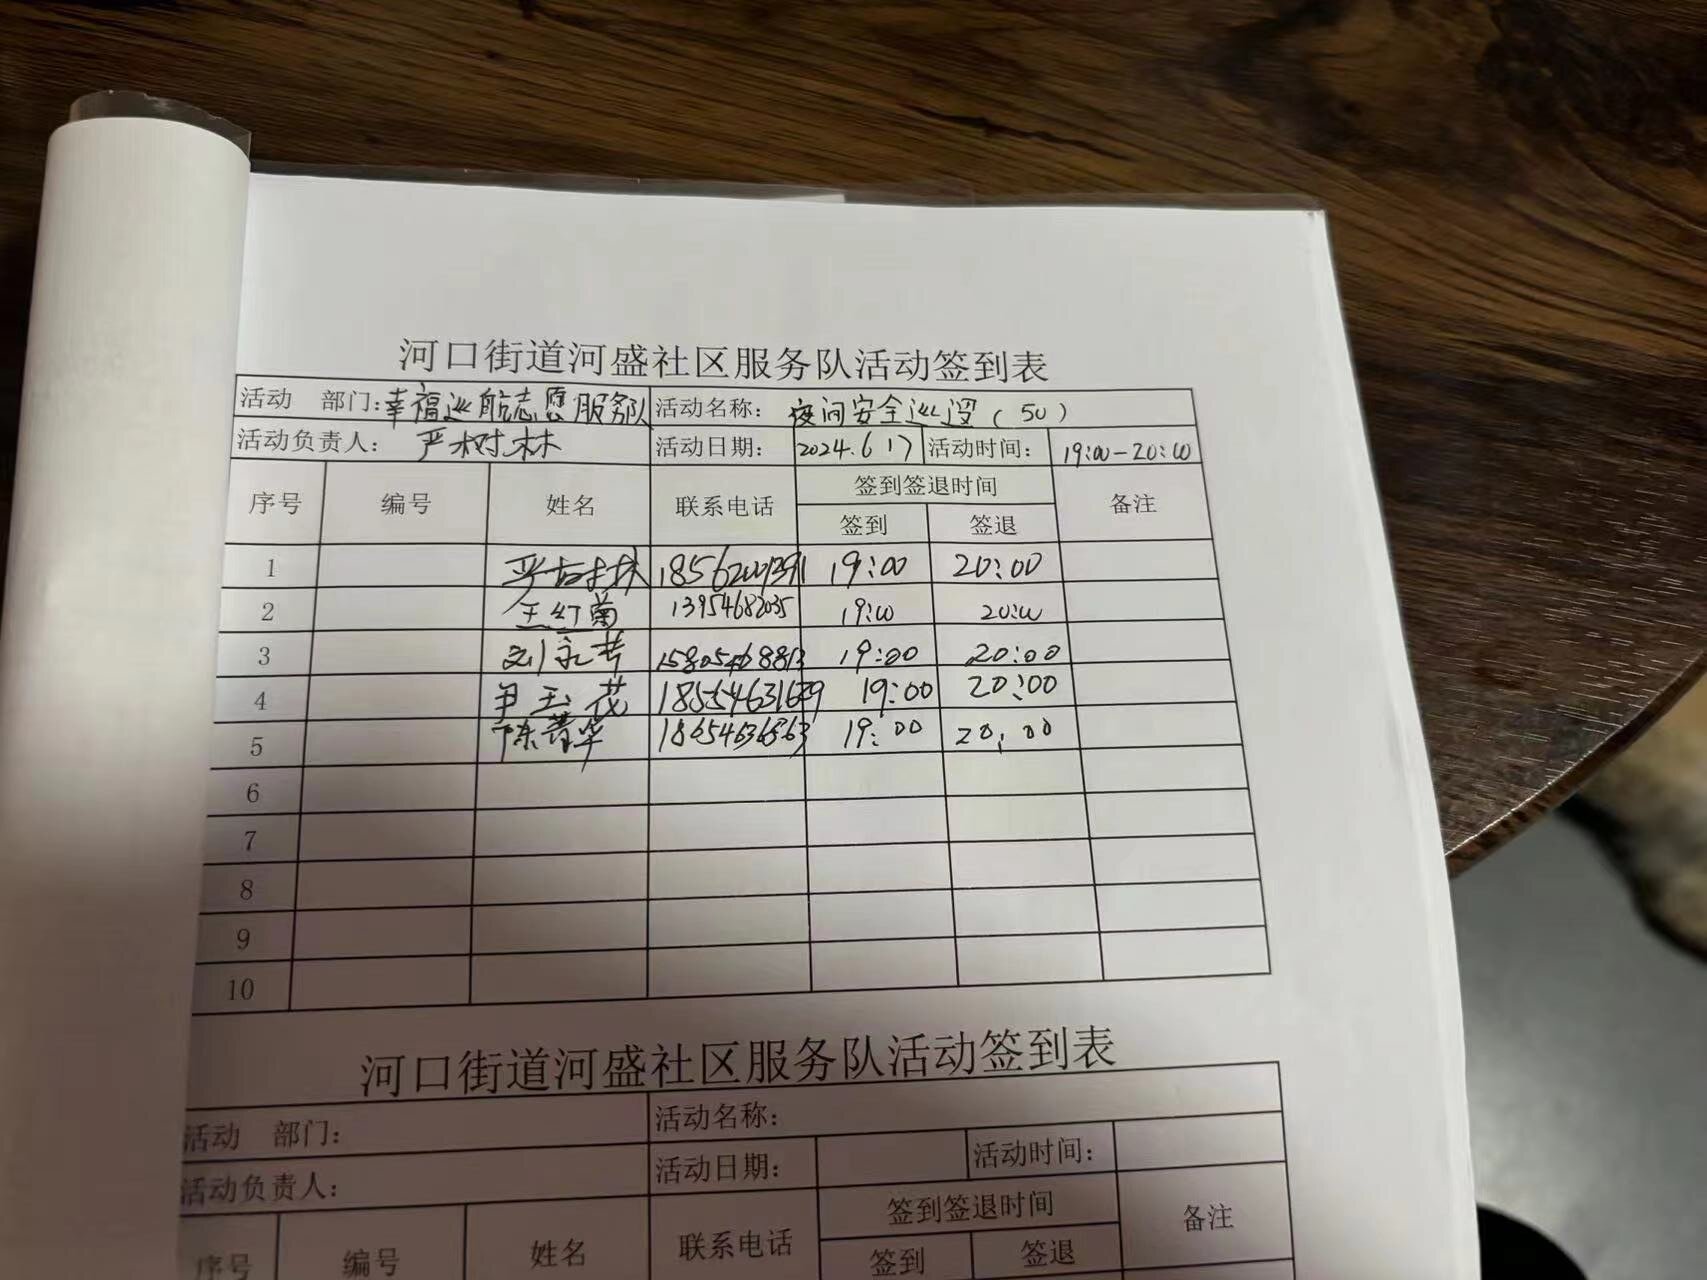 河口街道河盛社区服务队活动签到表
活动 部门：幸福巡航志愿服务队 活动名称： 夜间安全巡逻（50）
活动负责人： 严树林 活动日期： 2024.6 17 活动时间： 19:00-20:00
序号 编号 姓名 联系电话 签到签退时间 备注
签到 签退
1 严树林 19:00 20:00
2 王红菊 13954682035 19:00 20:00
3 刘永芳 15805468813 19:00 20:00
4 尹玉花 19:00 20:00
5 陈菁华 18654636563 19:00 20:00
6
7
8
9
10
河口街道河盛社区服务队活动签到表
活动 部门： 活动名称：
活动负责人： 活动日期： 活动时间：
序号 编号 姓名 联系电话 签到签退时间 备注
签到 签退